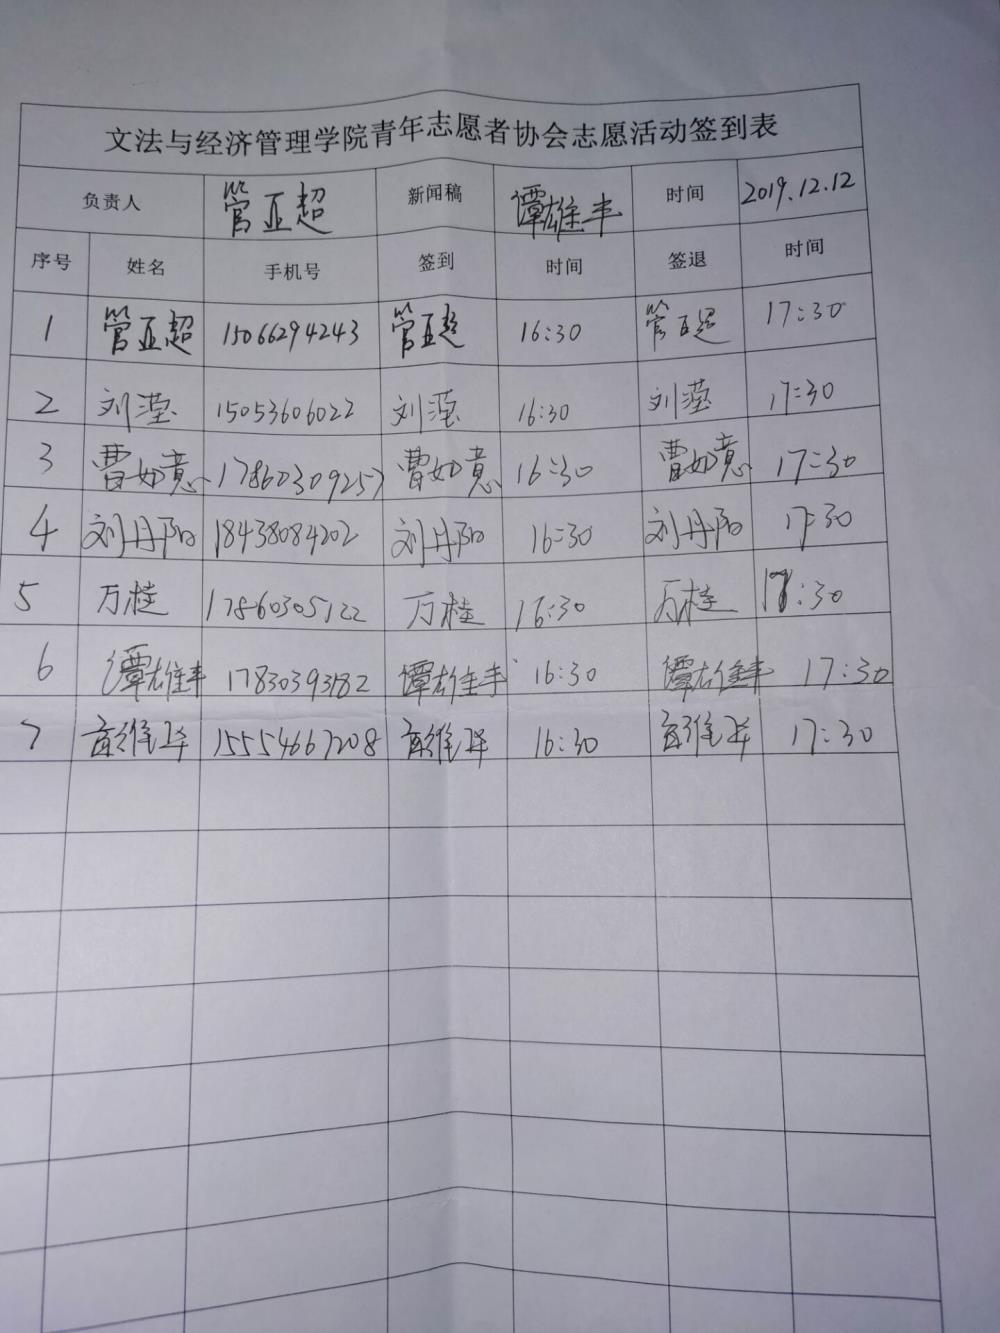 文法与经济管理学院青年志愿者协会志愿活动签到表
负责人 管亚超 新闻稿 谭雄丰 时间 2019.12.12
序号 姓名 手机号 签到 时间 签退 时间
1 管亚超 15066294243 管亚超 16:30 管亚超 17:30
2 刘滢 15053606022 刘滢 16:30 刘滢 17:30
3 曹如意 17860309257 曹如意 16:30 曹如意 17:30
4 刘丹阳 18438084202 刘丹阳 16:30 刘丹阳 17:30
5 万桂 17860305122 万桂 16:30 万桂 17:30
6 谭雄丰 17830393182 谭雄丰 16:30 谭雄丰 17:30
7 15554667208 16:30 17:30